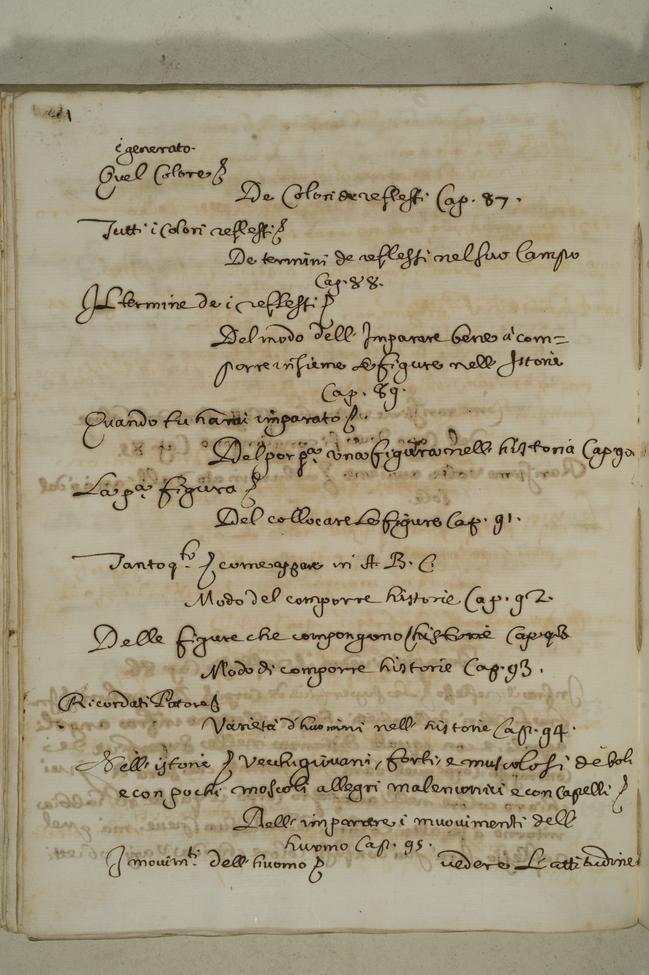 è generato.
Quel Colore
De Colori de reflessi Cap. 87.
Tutti i Colori reflessi
De termini de reflessi nel suo Campo
Cap. 88.
Il termine de i reflessi
Del modo dell Imparare bene à com=
porre insieme le figure nell Istorie
Cap. 89.
Quando tu harai imparato
Del por pa. una figura nell historia Cap 90
La pa. figura
Del collocare le figure Cap. 91.
Tanto qto come appare in A. B. C
Modo del comporre historie Cap. 92.
Delle figure che compongono historie Cap.
Modo di comporre historie Cap. 93.
Ricordati Patore
Varietà d'huomini nell historie Cap. 94.
Nell istorie vechi giovani, forti e muscolosi deboli
e con pochi moscoli allegri malenconici e con Capelli
Dell imparare i muovimenti dell
huomo Cap. 95.
I movimti. dell huomo vedere L'attitudine